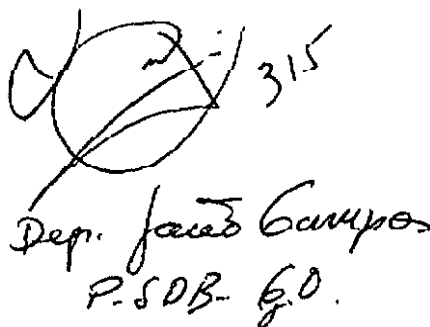 315
Dep. João Campos
P.SDB-GO.